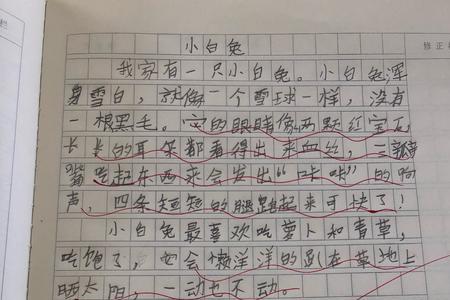 小白兔
我家有一只小白兔。小白兔浑
身雪白，就像一个雪球一样，没有
一根黑毛。它的眼睛像两颗红宝石，
长长的耳朵都看得出来血丝，三瓣
嘴吃起东西来会发出“咔咔”的响
声，四条短短的腿跑起来可快了！
小白兔最喜欢吃萝卜和青草，
吃饱了，它会懒洋洋的趴在草地上
晒太阳，一动也不动。
修正